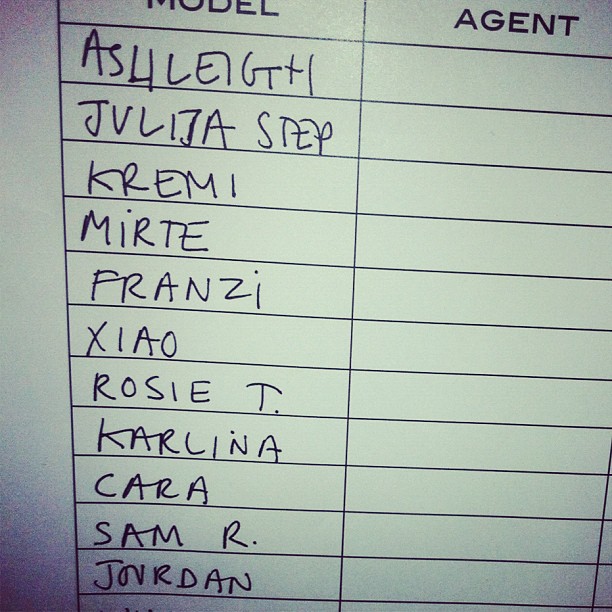 MODEL AGENT
ASHLEIGH
JULIJA STEP
KREMI
MIRTE
FRANZi
XIAO
ROSIE T.
KARLiNA
CARA
SAM R.
JOURDAN